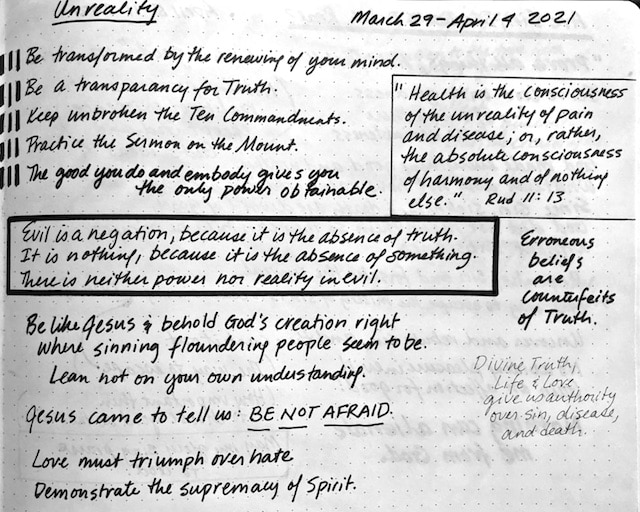 Unreality
March 29 - April 4 2021
Be transformed by the renewing of your mind.
Be a transparancy for Truth.
Keep unbroken the Ten Commandments.
Practice the Sermon on the Mount.
The good you do and embody gives you
the only power obtainable.
"Health is the consciousness
of the unreality of pain
and disease; or, rather,
the absolute consciousness
of harmony and of nothing
else." Rud 11:13
Evil is a negation, because it is the absence of truth.
It is nothing, because it is the absence of something.
There is neither power nor reality in evil.
Erroneous
beliefs
are
counterfeits
of Truth.
Be like Jesus & behold God's creation right
where sinning floundering people seem to be.
Lean not on your own understanding.
Divine Truth,
Life & Love
give us authority
over sin, disease,
and death.
Jesus came to tell us: BE NOT AFRAID.
Love must triumph over hate
Demonstrate the supremacy of Spirit.